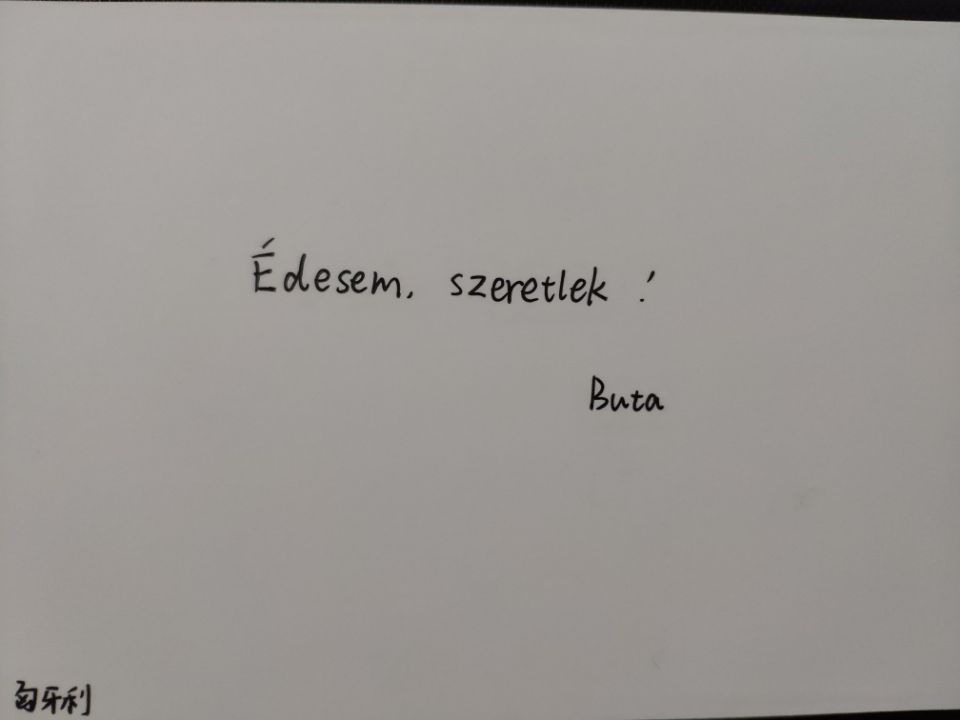 Édesem, szeretlek!
Buta
匈牙利